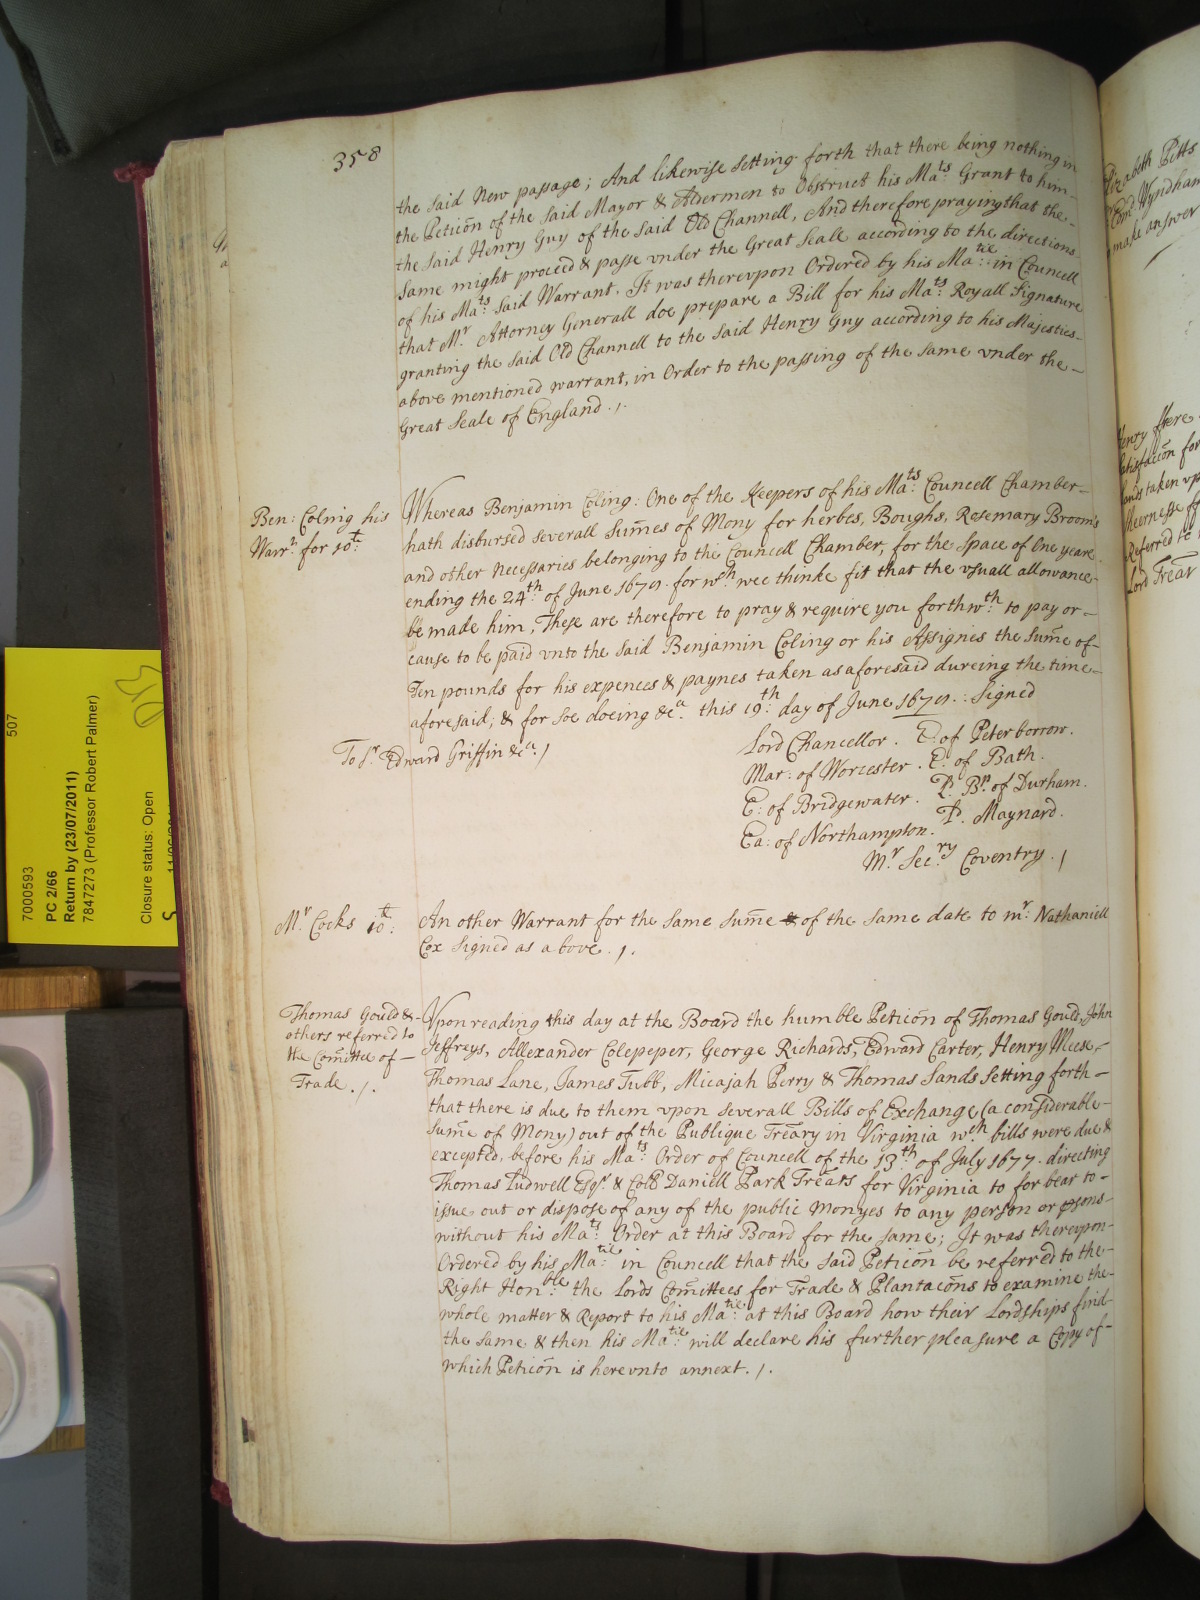 358
the said New passage; And likewise setting forth that there being nothing in
the Petic̄on of the said Mayor & Aldermen to Obstruct his Ma:ts Grant to him
the said Henry Guy of the said Old Channell, And therefore praying that the
same might proceed & passe vnder the Great Seale according to the directions
of his Ma:ts said Warrant. It was therevpon Ordered by his Ma:tie in Councell
that Mr Attorney Generall doe prepare a Bill for his Ma:ts Royall Signature
granting the said Old Channell to the said Henry Guy according to his Majesties
above mentioned warrant, in Order to the passing of the same vnder the
Great Seale of England ./.
Ben: Colnig his
Warr:t for 10:lt
Whereas Benjamin Coling: One of the Keepers of his Ma:ts Councell Chamber
hath disbursed severall sum̄es of Mony for herbes, Boughs, Rosemary Broom's
and other Necessaries belonging to the Councell Chamber, for the Space of One yeare
ending the 24th of June 1679. for wch wee thinke fit that the vsuall allowance
be made him, These are therefore to pray & require you forthw:th to pay or
cause to be paid vnto the said Benjamin Coling or his Assignes the sum̄e of
Ten pounds for his expences & paynes taken as aforesaid dureing the time
aforesaid; & for soe doeing &ca. this 19:th day of June 1679. : Signed
To Sr. Edward Griffin &ca. /
Lord Chancellor . E. of Peterborrow.
Mar: of Worcester . E: of Bath.
E: of Bridgewater . L. Bp. of Durham.
Ea: of Northampton. L. Maynard.
Mr. Sec:ry Coventry . /
Mr. Cocks 10:lt
An other Warrant for the same sum̄e & of the same date to mr: Nathaniell
Cox signed as above . /.
Thomas Gould &
others referred to
the Com̄ittee of
Trade . /.
Vpon reading this day at the Board the humble Petic̄on of Thomas Gould, John
Jeffreys, Allexander Colepeper, George Richards, Edward Carter, Henry Meese,
Thomas Lane, James Tubb, Micajah Perry & Thomas Sands setting forth
that there is due to them vpon severall Bills of Exchange (a considerable
sum̄e of Mony) out of the Publique Treāry in Virginia wch bills were due &
excepted, before his Ma:ts Order of Councell of the 13th of July 1677. directing
Thomas Ludwell Esqr. & Coll Daniell Park Treārs for Virginia to for bear to
issue out or dispose of any of the public Monyes to any person or psons
without his Ma:ts Order at this Board for the same; It was therevpon
Ordered by his Ma:tie in Councell that the said Petic̄on be referred to the
Right Hon:ble the Lords Com̄ittees for Trade & Plantac̄ons to examine the
whole matter & Report to his Ma:tie at this Board how their Lordships find
the same & then his Ma:tie will declare his further pleasure a Copy of
which Petic̄on is herevnto annext . /.
Elizabeth Pitts
Wyndham
make answer
Henry
satisfac̄on for
lands taken vp
Sheernesse
Referred to
Lord Trear
507
7000593
PC 2/66
Return by (23/07/2011)
7847273 (Professor Robert Palmer)
Closure status: Open